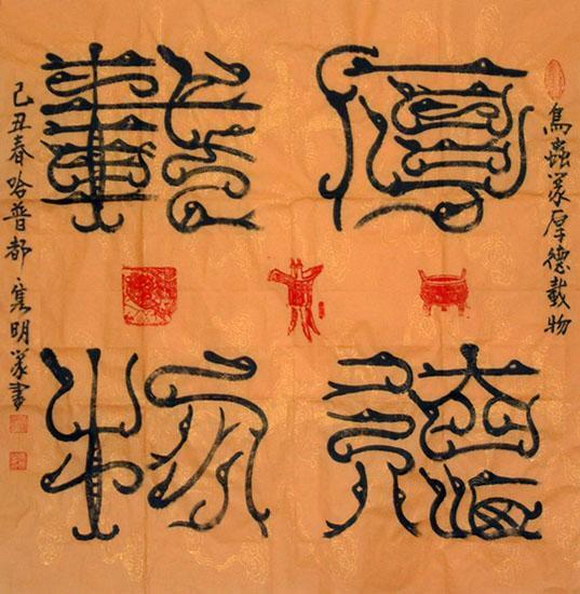 鳥蟲篆厚德載物
厚德
載物
己丑春哈普都隽明篆書